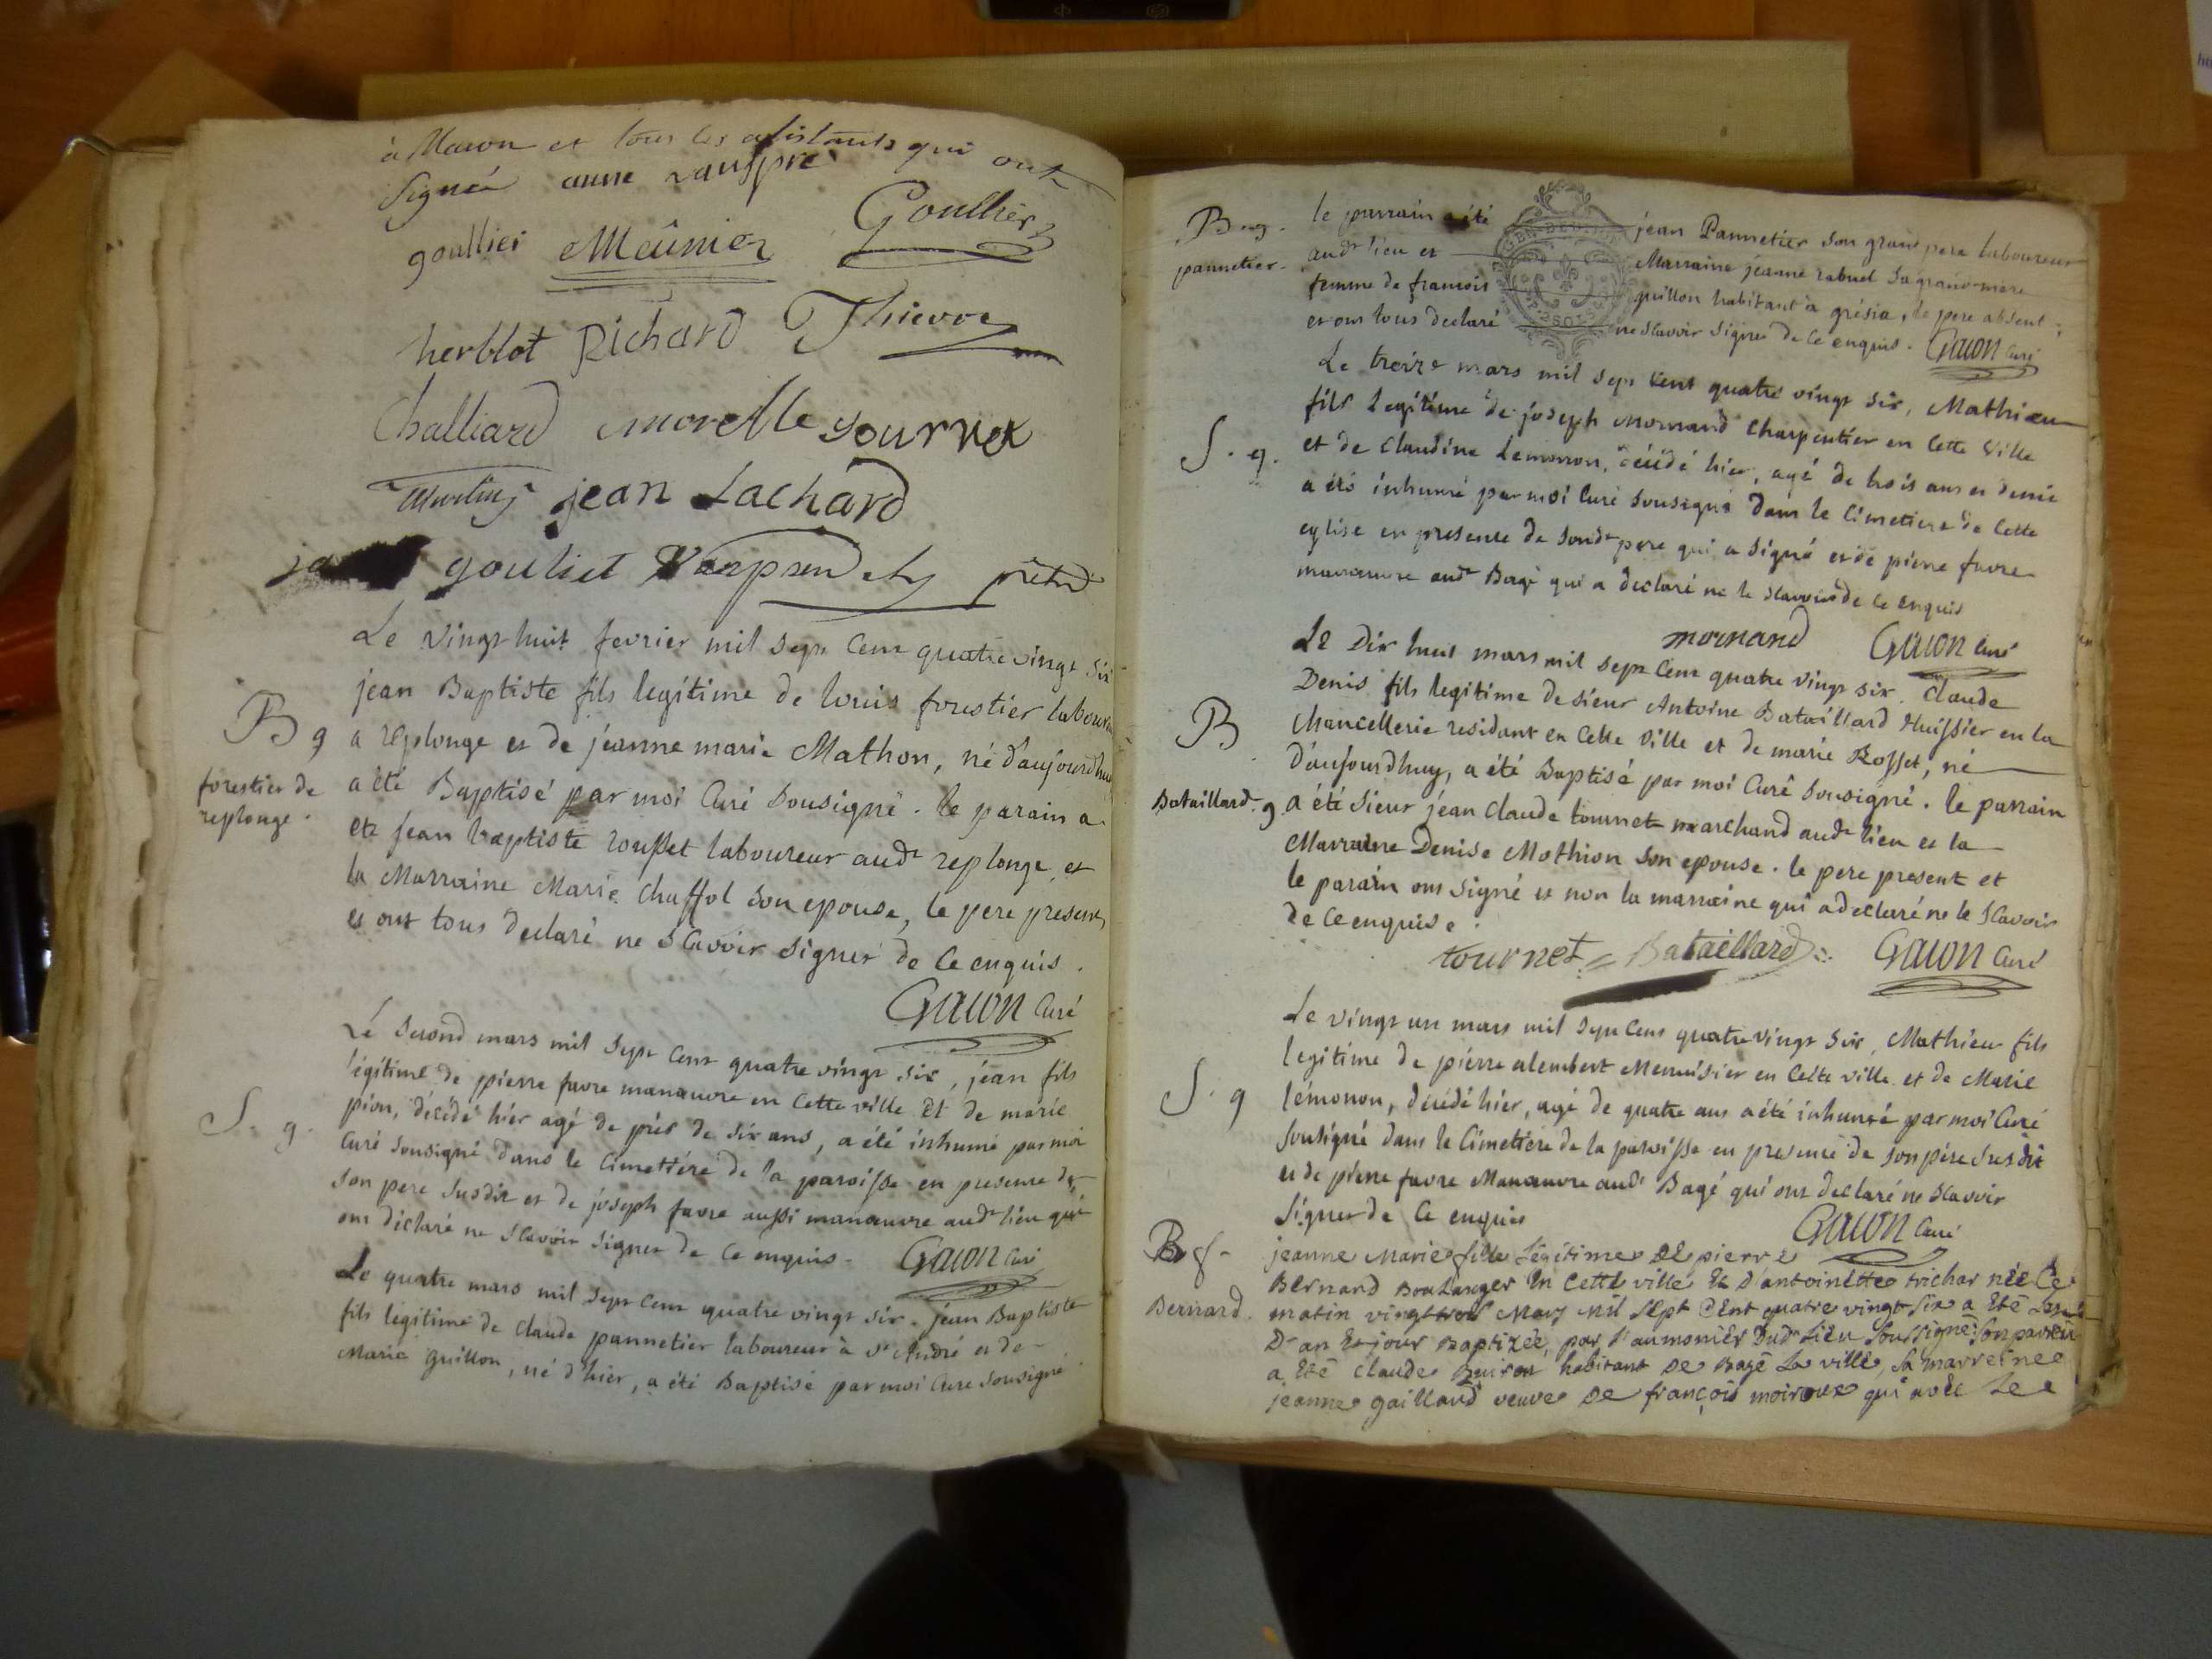 à Macon et tous les assistants qui ont
signé anne
goullier Meûnier Goullier
herblot Richard Thievre
Challiard morelle
Martin jean Lachard
gouliet prêtre
Le vingt huit fevrier mil sept cent quatre vingt six
jean Baptiste fils legitime de louis forestier laboureur
B g
a replonge et de jeanne marie Mathon, né d'aujourdhuy
forestier de
replonge.
a été Baptisé par moi Curé sousigné. le parain a
ete jean baptiste rousset laboureur audt replonge, et
la Marraine Marie Chaffol son epouse, le pere present,
et ont tous declaré ne sçavoir signer de ce enquis.
Gacon Curé
Le second mars mil sept cent quatre vingt six, jean fils
légitime de pierre favre manœuvre en cette ville et de marie
S. g.
pion, décédé hier agé de prés de six ans, a été inhumé par moi
Curé sousigné dans le Cimettiére de la paroisse en presence de
son pere susdit et de joseph favre aussi manœuvre audt lieu qui
ont déclaré ne sçavoir signer de ce enquis. Gacon Curé
Le quatre mars mil sept cent quatre vingt six. jean Baptiste
fils legitime de Claude pannetier laboureur à St André et de
Marie guillon, né d'hier, a été Baptisé par moi Curé sousigné
B. g.
pannetier.
le parrain a été jean Pannetier son grand pere laboureur
audt lieu et Marraine jeanne rabuel sa grand-mere
femme de francois guillon habitant à grésia, le pere absent;
et ont tous declaré ne sçavoir signer de ce enquis. Gacon Curé
Le treize mars mil sept cent quatre vingt six, Mathieu
fils Legitime de joseph mornand Charpentier en Cette Ville
S. g.
et de Claudine Lemonon, décédé hier, agé de trois ans et demie
a été inhumé par moi Curé sousigné dans le Cimetiere de Cette
eglise en presence de sondt pere qui a signé et de pierre favre
manœuvre audt Bagé qui a declaré ne le sçavoir de ce enquis
mornand Gacon Curé
Le Dix huit mars mil sept Cent quatre vingt six. Claude
Denis fils legitime de sieur Antoine Bataillard Huissier en la
B
Chancellerie residant en Cette Ville et de marie Rosset, né
d'aujourdhuy, a été Baptisé par moi Curé sousigné. le parrain
Bataillard. g
a été sieur jean Claude tournet marchand audt lieu et la
Marraine Denise Mothion son epouse. le pere present et
le parain ont signé et non la marraine qui a declaré ne le sçavoir
de ce enquise.
tournet Bataillard Gacon Curé
Le vingt un mars mil sept cens quatre vingt six, Mathieu fils
legitime de pierre alembert Menuisier en Cette ville et de Marie
S. g
lémonon, décédé hier, agé de quatre ans a été inhumé par moi Curé
sousigné dans le Cimettére de la paroisse en presence de son pére susdit
et de pierre favre Manœuvre audt Bagé qui ont declaré ne sçavoir
signer de ce enquis Gacon Curé
B f
jeanne Marie fille Légitime de pierre
Bernard Boulanger en Cette ville et d'antoinette trichar née Ce
Bernard.
matin vingt trois Mars mil sept Cent quatre vingt six a été
Dt an et jour Baptizée, par l'aumonier dudt Lieu soussigné: son parrein
a été Claude habitant de Bagé La ville, sa marreine
jeanne gaillard veuve de françois moiroux qui avec Le